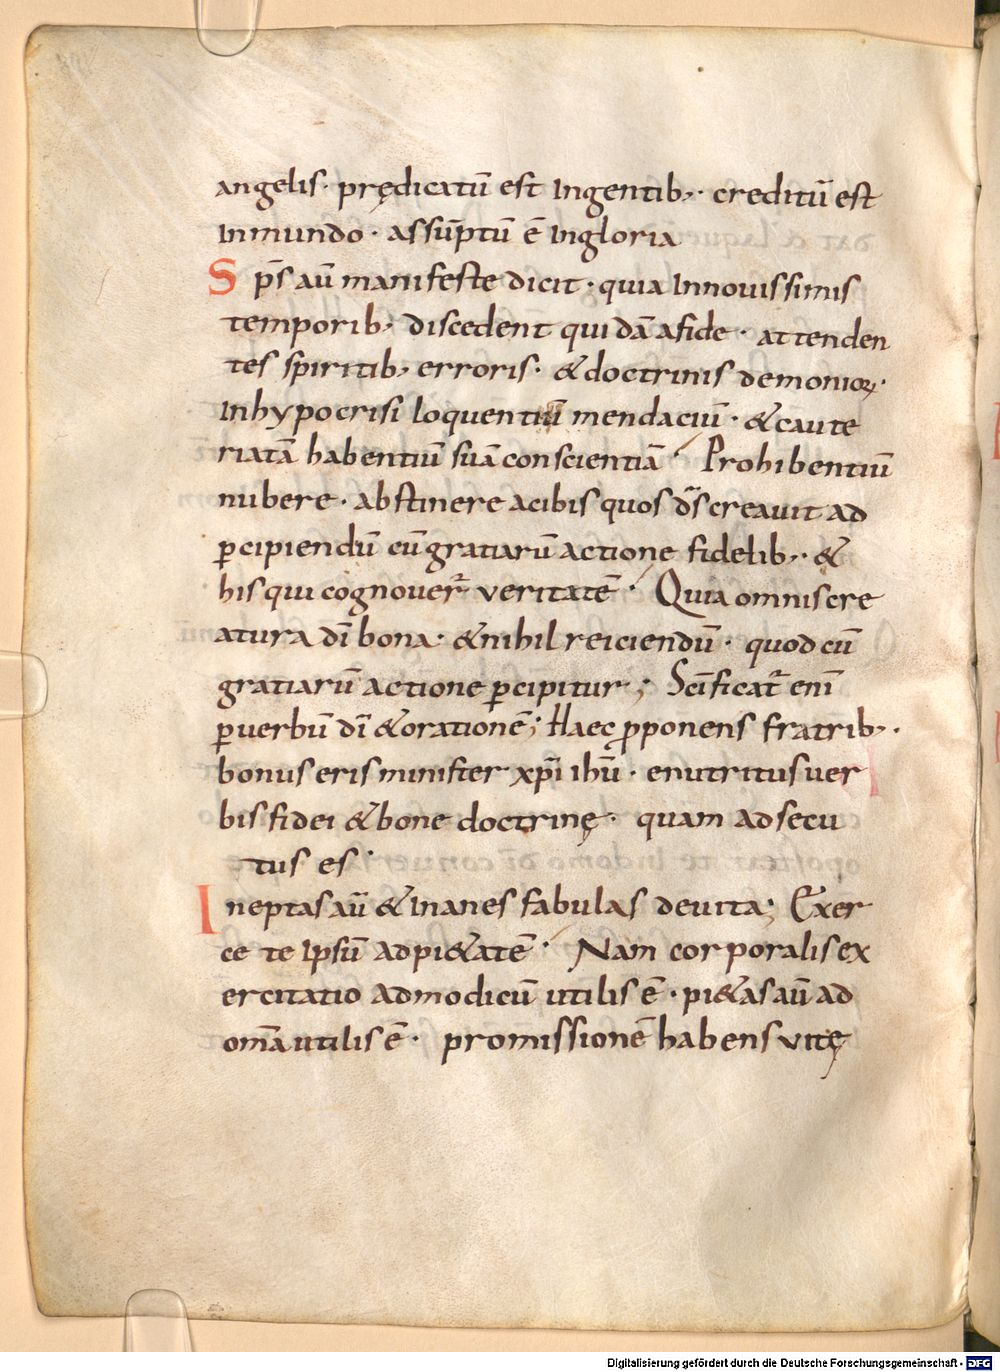 angelis· prędicatū est Ingentib;· creditū est
Inmundo· assūptū ē Ingloria
Sp̄s aū manifeste dicit· quia Innouissimis
temporib; discedent quidā afide· attenden
tes spiritib; erroris· & doctrinis demonioꝝ·
Inhypocrisi loquentiū mendaciū· & caute
riatā habentiū suā conscientiā· Prohibentiū
nubere· abstinere acibis quos d̄s creauit ad
ꝑcipiendū cū gratiarū actione fidelib;· &
his qui cognouer̄ veritatē· Quia omnis cre
atura dī bona· & nihil reiciendū· quod cū
gratiarū actione ꝑcipitur; Scīficat̄ enī
ꝑ uerbū dī & orationē; Haec ꝓponens fratrib;·
bonus eris minister xp̄i ih̄u· enutritus uer
bis fidei & bone doctrinę· quam adsecu
tus es·
Ineptas aū & Inanes fabulas deuita; Exer
ce te Ipsū ad pi&atē· Nam corporalis ex
ercitatio ad modicū utilis ē· pi&as aū ad
om̄a utilis ē· promissionē habens vitę
Digitalisierung gefördert durch die Deutsche Forschungsgemeinschaft - DFG